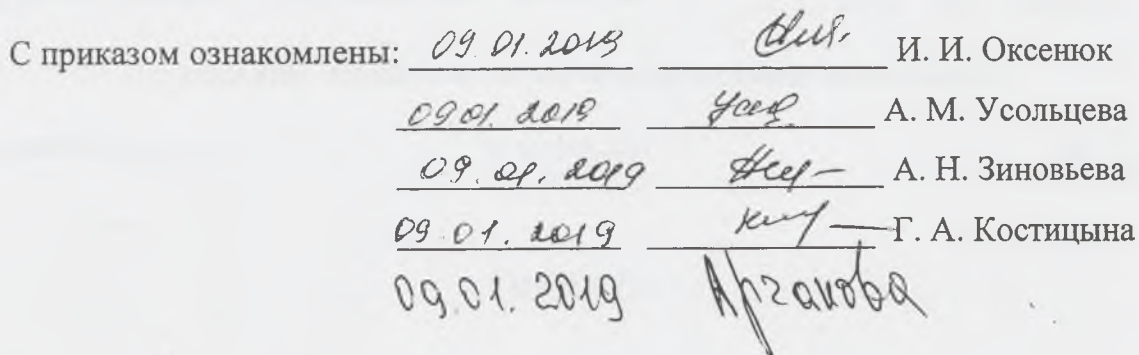 С приказом ознакомлены: 09.01.2019 И. И. Оксенюк
09.01.2019 А. М. Усольцева
09.01.2019 А. Н. Зиновьева
09.01.2019 Г. А. Костицына
09.01.2019 Аргакова